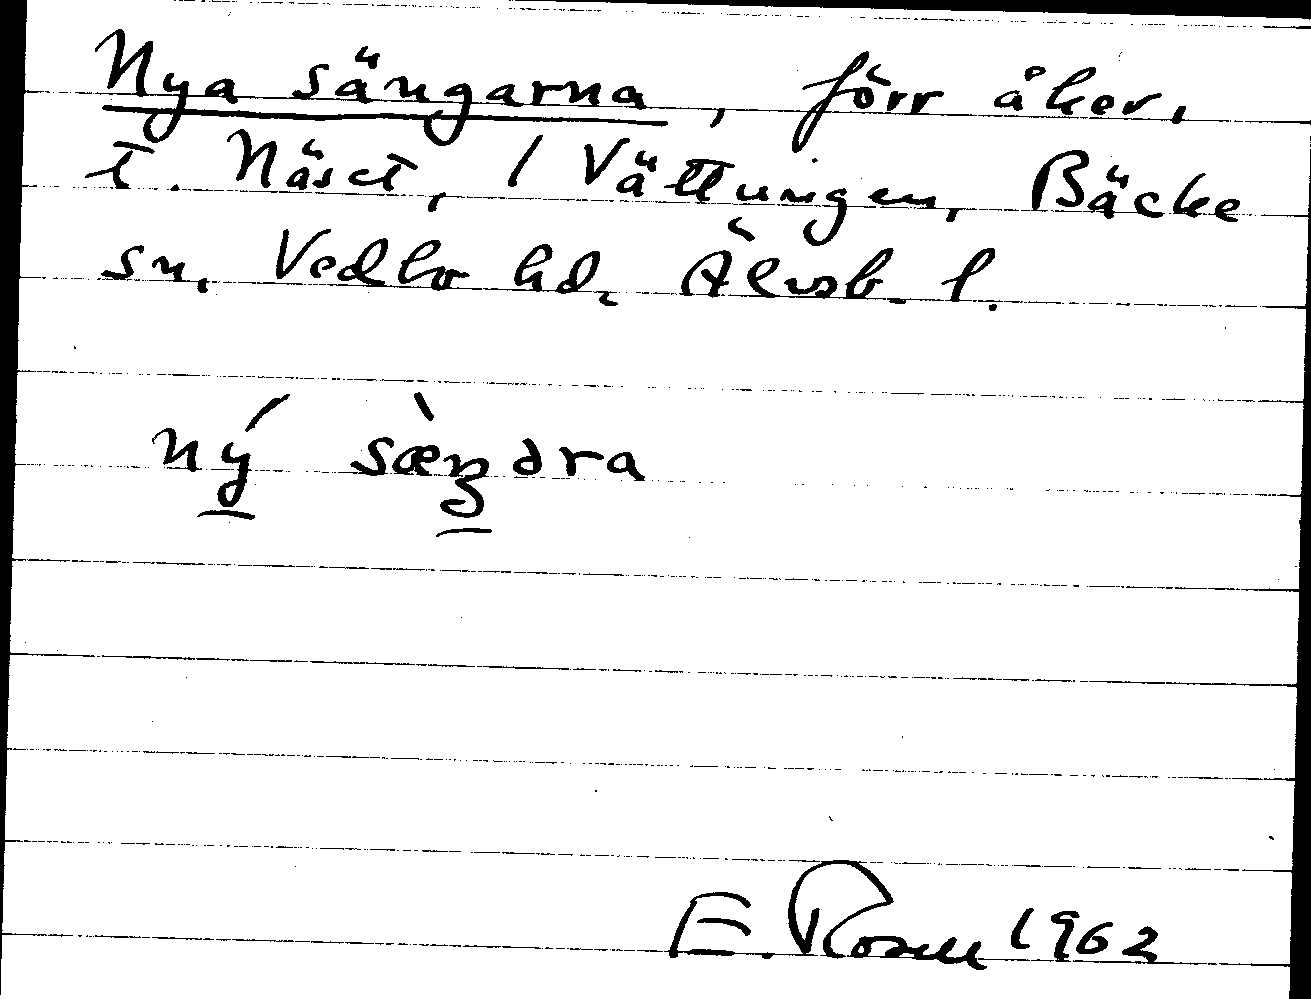 Nya sängarna, förr åker,
t. Näset, 1 Vättungen, Bäcke
sn, Vedbo hd, Älvsb. l.
ný sæ̀ŋəra
E. Rosell 1962